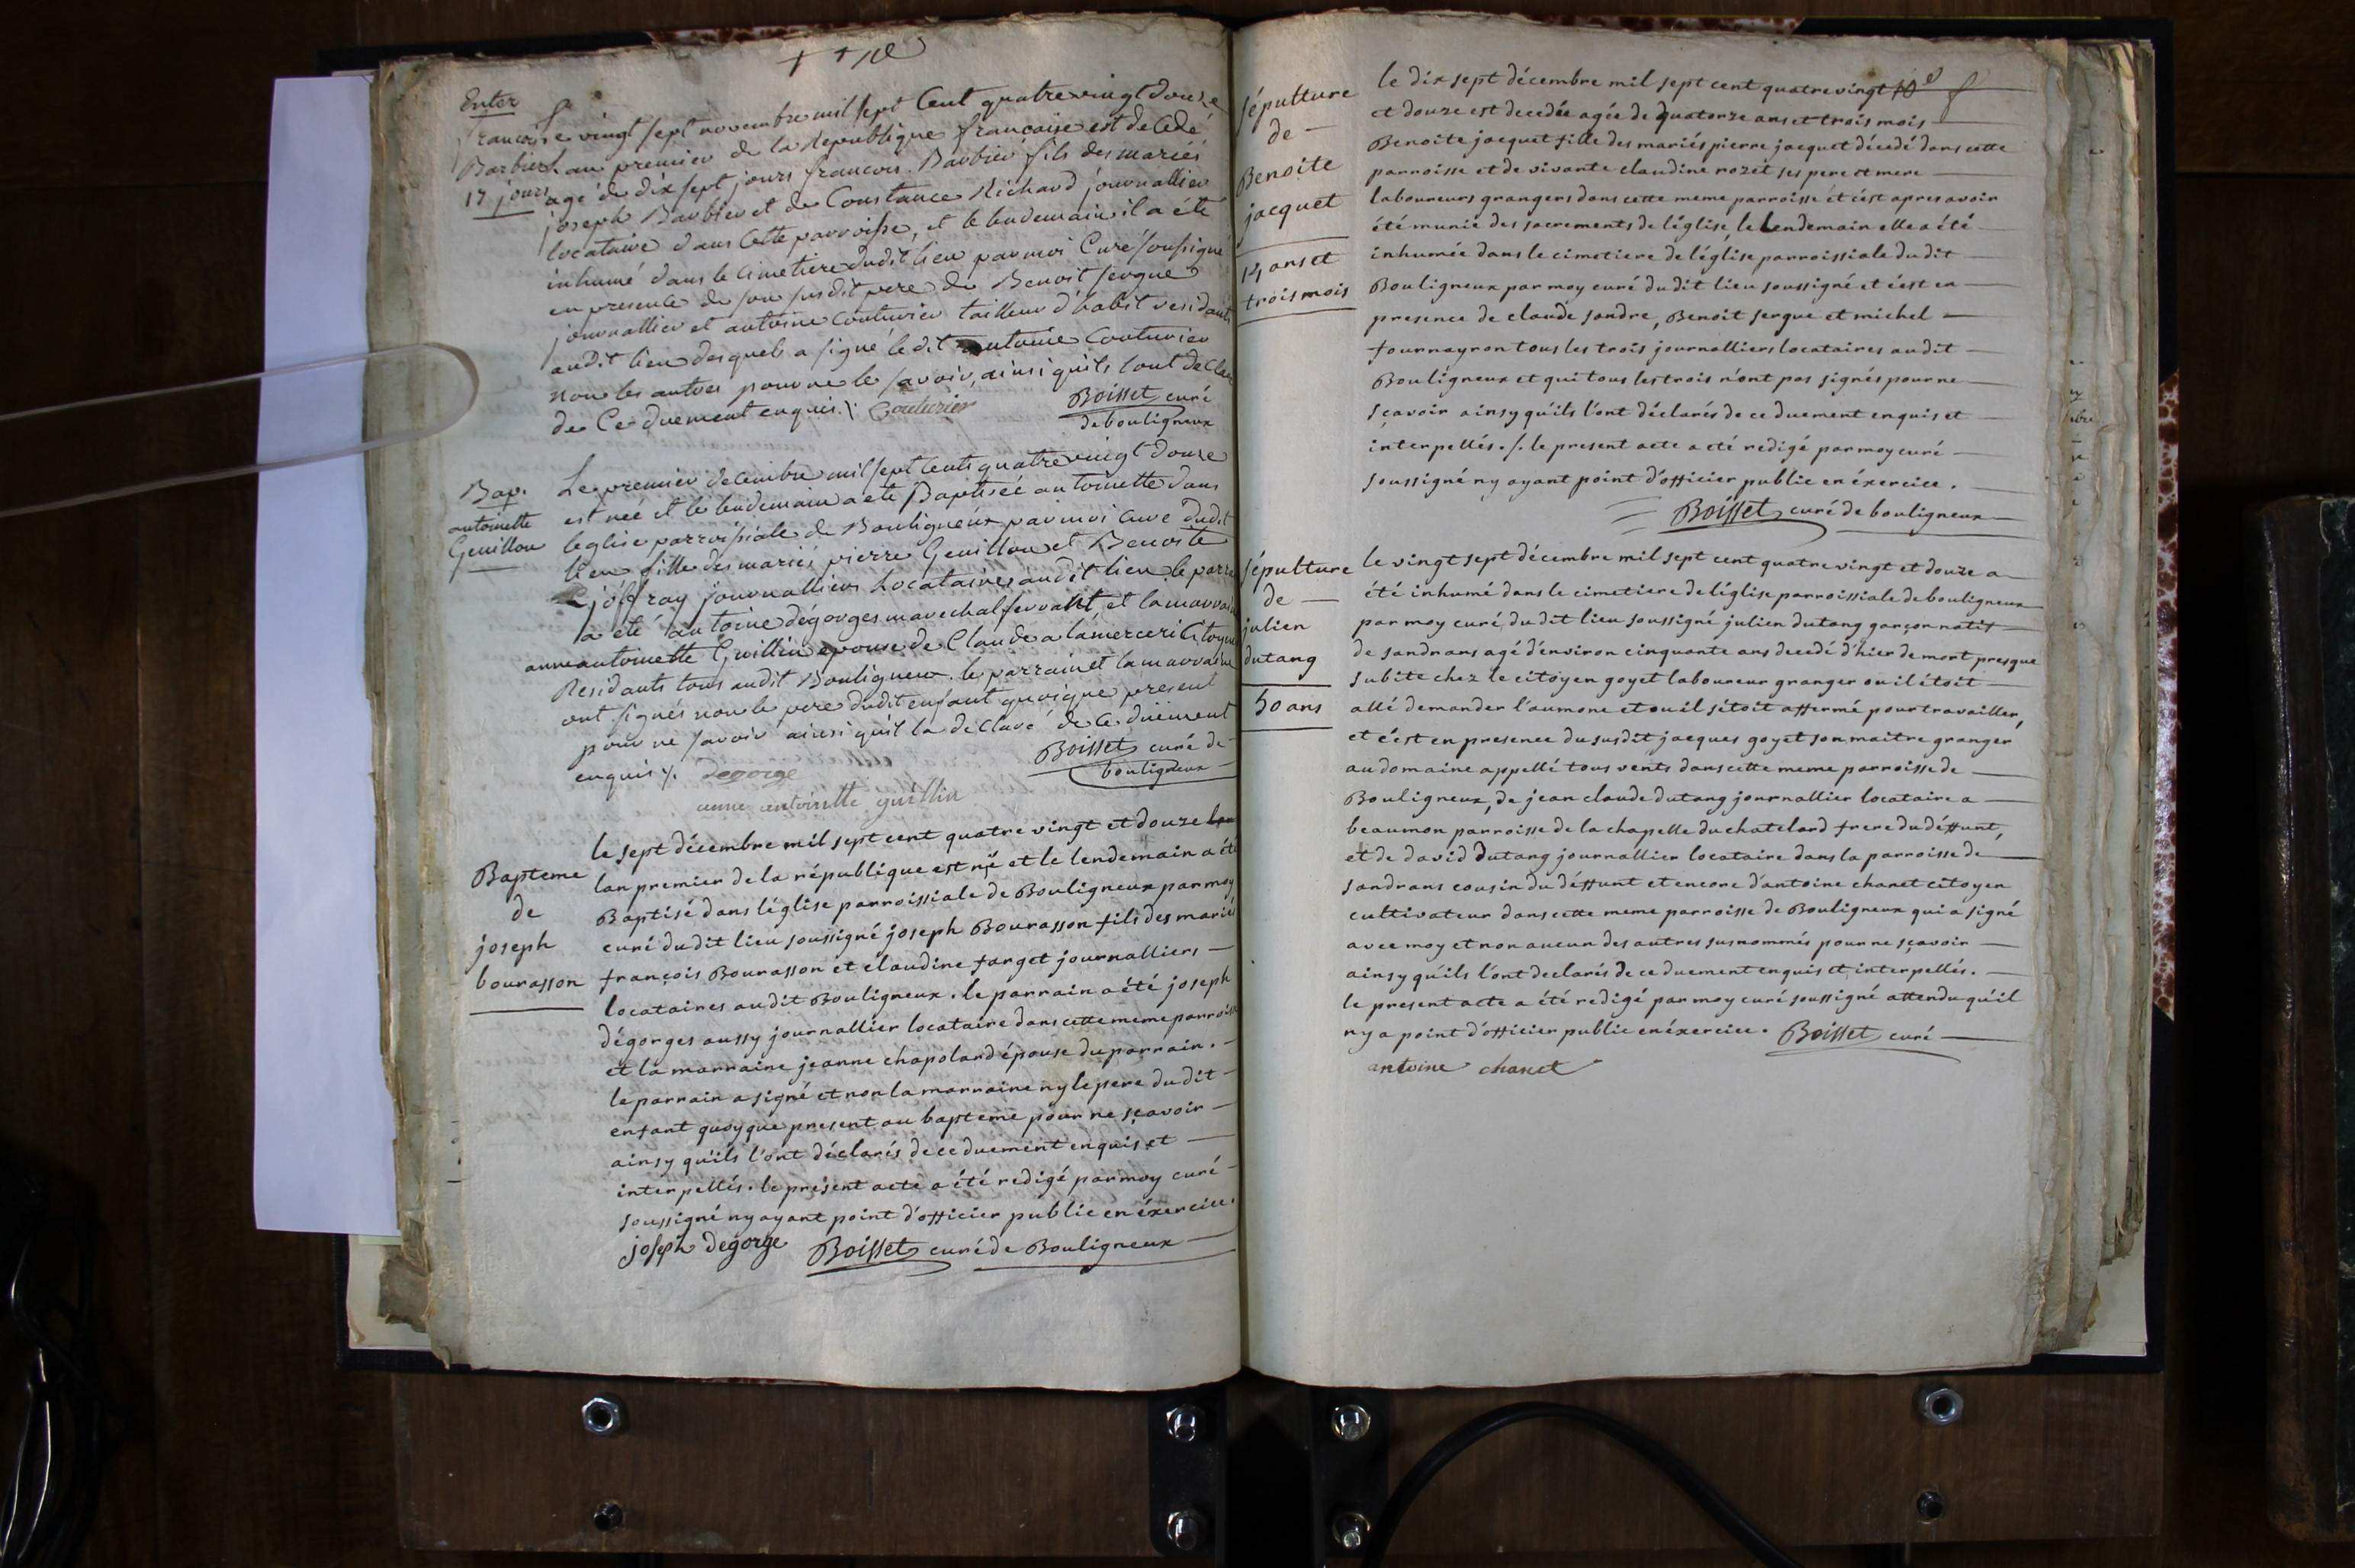 Enter
françois
Barbier
17 jours
Le vingt sept novembre mil sept Cent quatre vingt douze
l'an premier de la Republique francaise est decedé
agé de dix sept jours francois Barbier fils des mariés
joseph Barbier et de Constance Richard journallier
locataire dans Cette parroisse, et le lendemain il a été
inhumé dans le Cimetiere dudit lieu par moi Curé soussigné
en presence de son susdit pere de Benoit sergue
journallier et antoine Couturier tailleur d'habit residants
audit lieu desquels a signé le dit antoine Couturier
non les autres pour ne le savoir, ainsi quils l'ont declaré
de Ce duement enquis. /. Couturier Boisset curé
de bouligneux
Bap.
antoinette
Genillon
Le premier decembre mil sept Cents quatre vingt douze
est née et le lendemain a été Baptisée antoinette dans
leglise parroissiale de Bouligneux par moi Curé dudit
lieu fille des mariés pierre Genillon et Benoite
joffray journalliers Locataires audit lieu, le parrain
a été antoine dégorges marechal ferrant, et la marraine
anne antoinette Guillin epouse de Claude a lamerceri Citoyen
Residants tous audit Bouligneux. le parrain et la marraine
ont signés non le pere dudit enfant quoique present
pour ne savoir ainsi qu'il la declaré de Ce duëment
enquis /. degorge Boisset curé de
bouligneux
anne antoinette guillin
Bapteme
de
joseph
bourasson
le sept décembre mil sept cent quatre vingt et douze
lan premier de la république est né et le lendemain a été
Baptisé dans léglise parroissiale de Bouligneux par moy
curé dudit lieu soussigné joseph Bourasson fils des mariés
françois Bourasson et claudine farget journalliers
locataires audit Bouligneux. le parrain a été joseph
dégorges aussy journallier locataire dans cette meme parroisse
et la marraine jeanne chapoland épouse du parrain.
le parrain a signé et non la marraine ny le pere dudit
enfant quoy que present au bapteme pour ne sçavoir
ainsy qu'ils l'ont déclarés de ce duement enquis et
interpellés. le present acte a été redigé par moy curé
soussigné ny ayant point d'officier public en éxercice.
joseph degorge Boisset curé de Bouligneux
sépulture
de
Benoite
jacquet
14 ans et
trois mois
le dix sept décembre mil sept cent quatre vingt
et douze est decedée agée de quatorze ans et trois mois
Benoite jacquet fille des mariés pierre jacquet décedé dans cette
parroisse et de vivante claudine rozet ses pere et mere
laboureurs grangers dans cette meme parroisse et c'est apres avoir
été munie des sacrements de léglise, le lendemain elle a été
inhumée dans le cimetiere de léglise parroissiale du dit
Bouligneux par moy curé du dit lieu soussigné et c'est en
presence de claude sandre, Benoit sergue et michel
fournayron tous les trois journalliers locataires audit
Bouligneux et qui tous les trois n'ont pas signés pour ne
sçavoir ainsy qu'ils l'ont déclarés de ce duement enquis et
interpellés. /. le present acte a été redigé par moy curé
soussigné ny ayant point d'officier public en éxercice.
Boisset curé de bouligneux
sépulture
de
julien
dutang
50 ans
le vingt sept décembre mil sept cent quatre vingt et douze a
été inhumé dans le cimetiere de léglise parroissiale de bouligneux
par moy curé du dit lieu soussigné julien dutang garçon natif
de sandrans agé d'environ cinquante ans decedé d'hier de mort presque
subite chez le citoyen goyet laboureur granger ou il étoit
allé demander l'aumone et ou il s'étoit affermé pour travailler,
et c'est en presence du susdit jacques goyet son maitre granger
au domaine appellé tous vents dans cette meme parroisse de
Bouligneux, de jean claude dutang journallier locataire a
beaumon parroisse de la chapelle du chatelard frere du déffunt,
et de david dutang journallier locataire dans la parroisse de
sandrans cousin du déffunt et encore d'antoine chanet citoyen
cultivateur dans cette meme parroisse de Bouligneux qui a signé
avec moy et non aucun des autres susnommés pour ne sçavoir
ainsy qu'ils l'ont declarés de ce duement enquis et interpellés.
le present acte a été redigé par moy curé soussigné attendu qu'il
ny a point d'officier public en éxercice. Boisset curé
antoine chanet